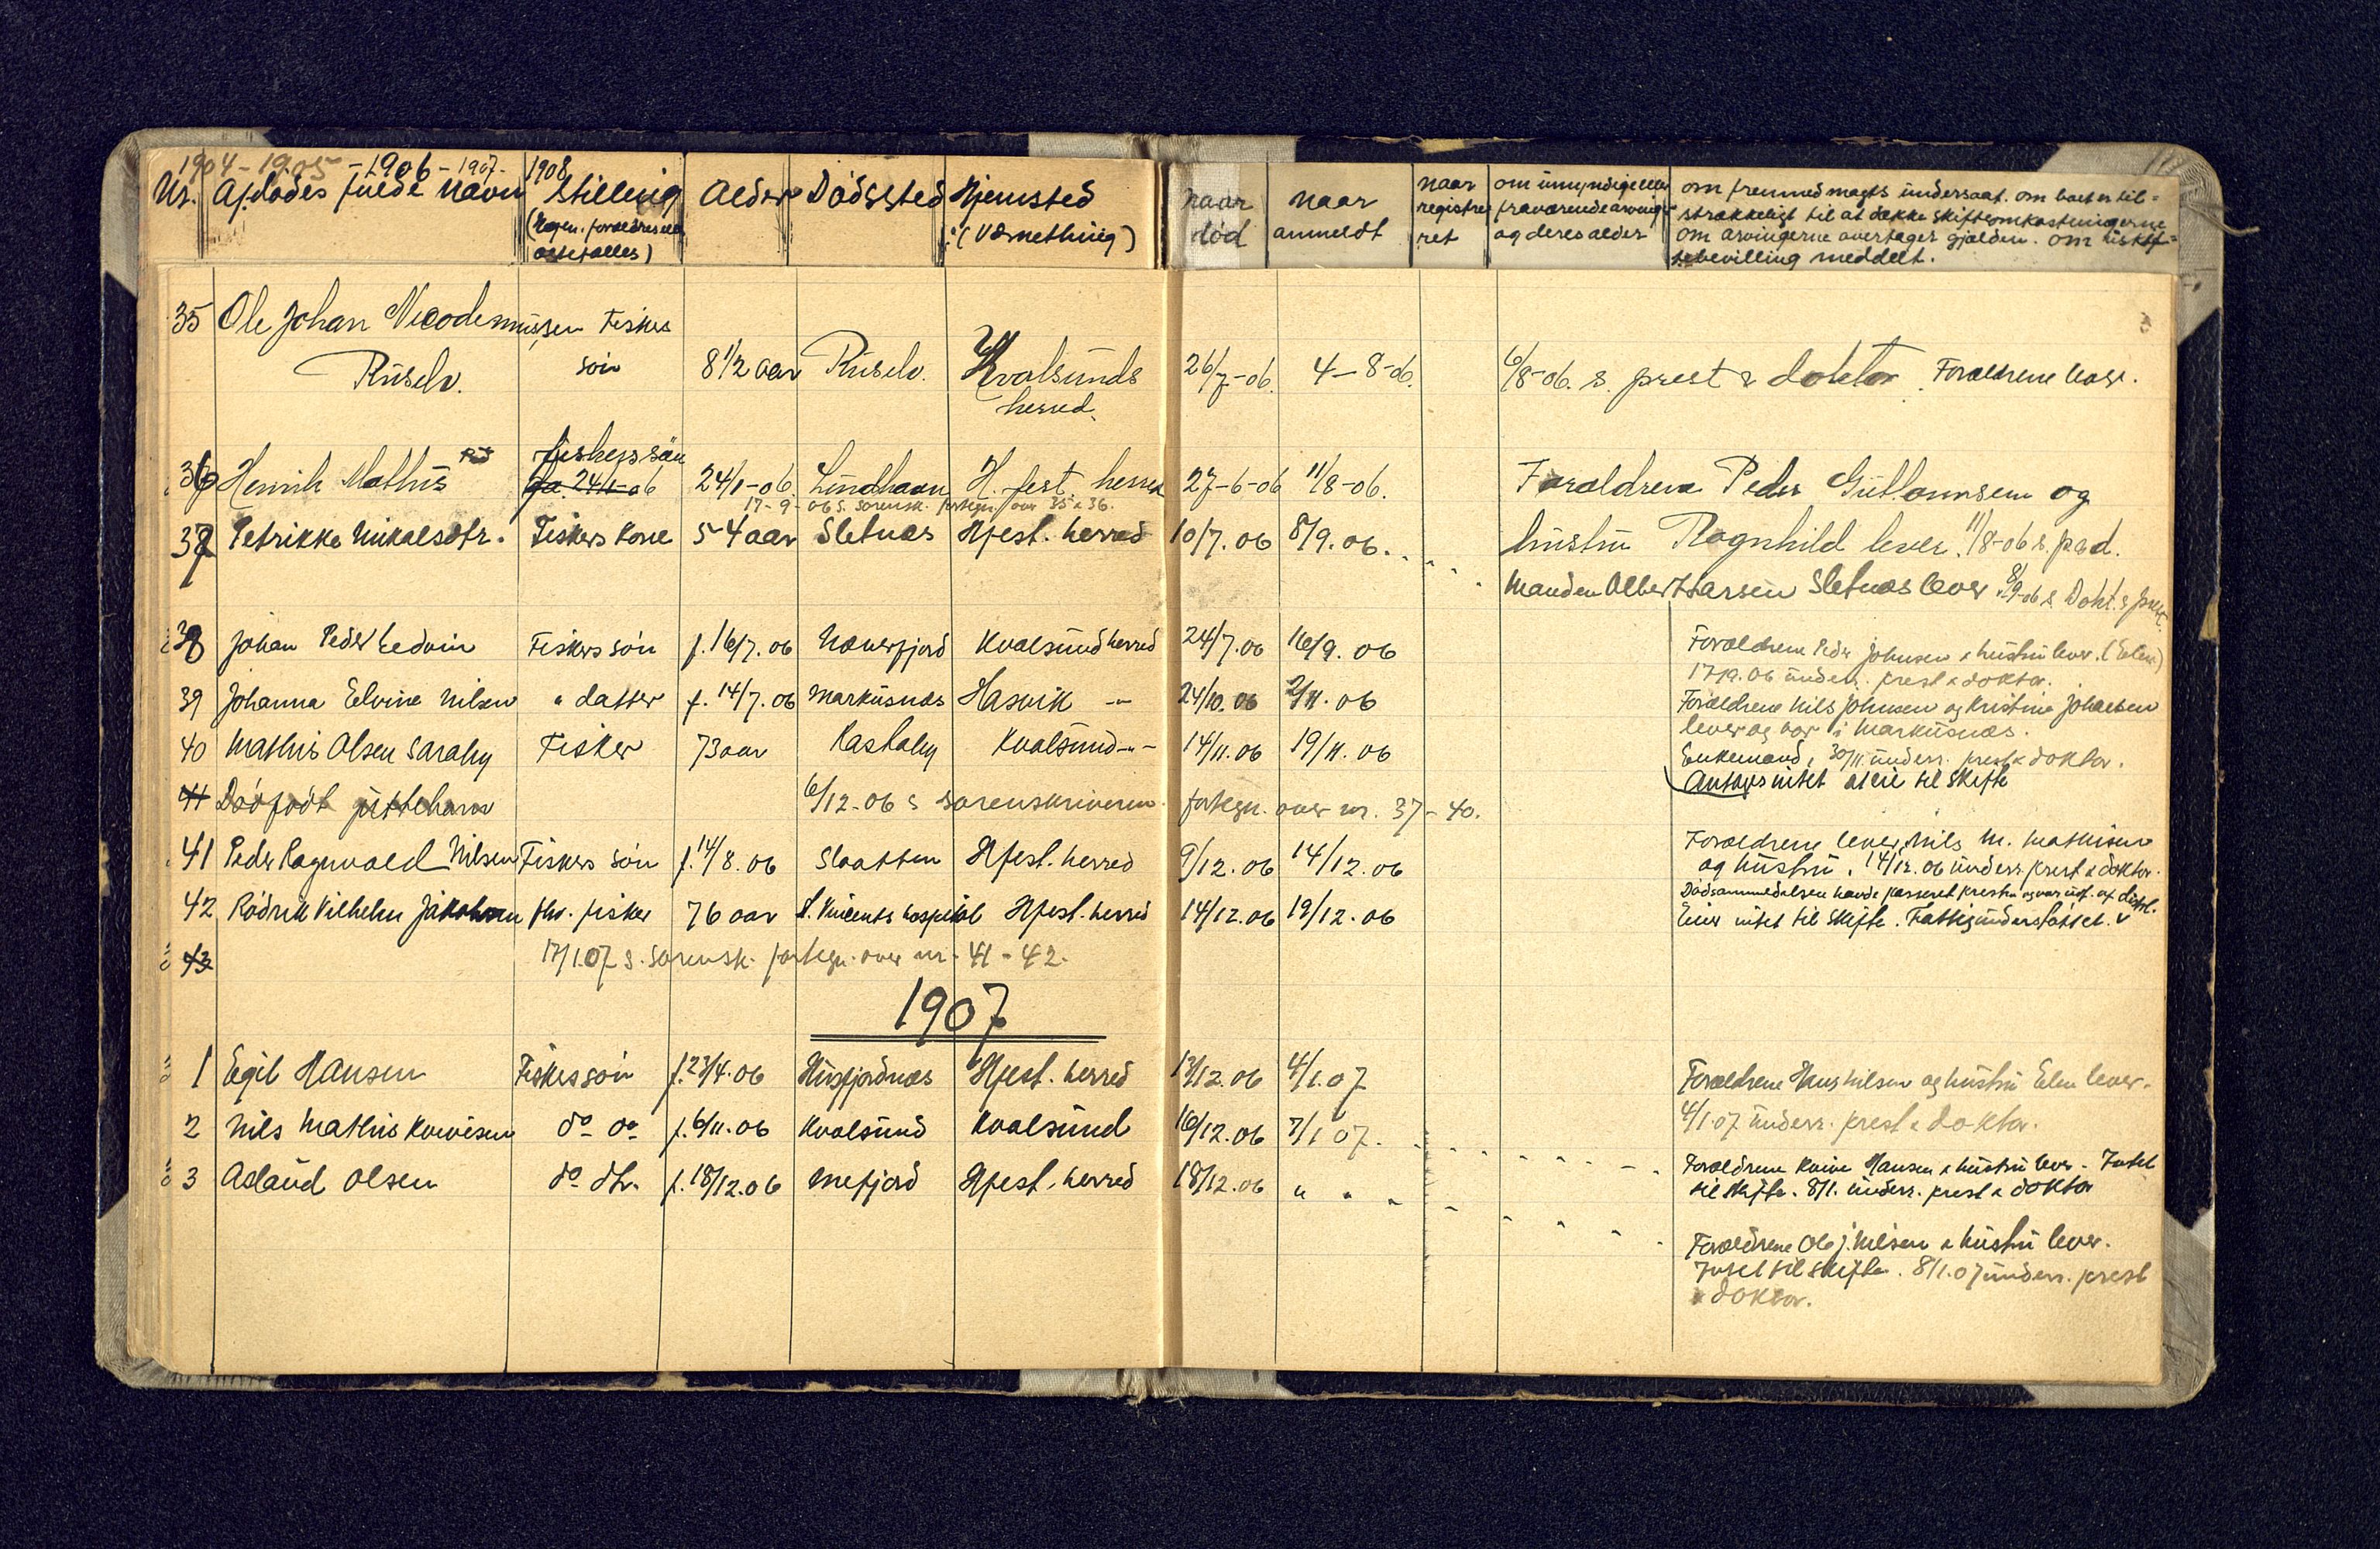 1904 - 1905 - 1906 - 1907 - 1908
Nr. Afdødes fulde navn Stilling Alder Dødssted Hjemsted naar død naar anmeldt naar registreret om umyndige eller fraværende arvinger og deres alder om fremmed magts undersaat. om boet er til-
(tillige forældres eller (værnething) strækkeligt til at dække skifteomkostningerne
ægtefælles) om arvingerne overtager gjælden. om uskif-
tebevilling meddelt.
35 Ole Johan Nicodemussen Fiskers
Riselv. søn 8 1/2 aar Riselv. Kvalsunds 26/7-06. 4-8-06. 6/8-06. s. prest & doktor. Forældrene leve.
herred.
36 Henrik Mathis fiskers søn 24/1-06. Lundhavn H.fest herred 27-6-06 11/8-06. Forældrene Peder Guttormsen og
17-9-06 s. sorensk. fortegn. over 35 & 36.
37 Petrikke Nikolsdtr. Fiskers kone 54 aar Sletnes Hfest. herred 10/7.06 8/9.06. hustru Ragnhild lever. 11/8-06 s. p. a. d.
Manden Albert Larsen Sletnes lever 8/9-06 s. Dokt. & prest.
38 Johan Peder Eedvin Fiskers søn f. 16/7.06 Næverfjord Kvalsund herred 24/7.06 16/9.06 Forældrene Peder Johnsen & hustru lever. (Elen)
17/9.06 underr. prest & doktor.
39 Johanna Elvine Nilsen " datter f. 14/7.06 Markusnæs Hasvik -"- 24/10.06 2/11.06 Forældrene Nils Johnsen og Kristine Johansen
lever og bor i Markusnæs.
40 Mathis Olsen Saraby Fisker 73 aar Kastaby Kvalsund -"- 14/11.06 19/11.06 Enkemand, 30/11 underr. prest & doktor.
Antages intet at eie til skifte
41 Dødfødt guttebarn 6/12-06 s sorenskriveren fortegn. over nr. 37-40.
41 Peder Ragnvald Nilsen Fiskers søn f. 14/8.06 Slaatten Hfest. herred 9/12.06 14/12.06 Forældrene lever, Nils M. Mathisen
og hustru. 14/12.06 underr. prest & doktor.
42 Rødrik Vilhelm Jakobsen fhv. fisker 76 aar St. Vincents hospital Hfest. herred 14/12.06 19/12.06 Dødsanmeldelsen havde passeret presten og var udf. af distl.
Eier intet til skifte. Fattigunderstøttet. v
43 17/1.07 s. sorensk. fortegn. over nr. 41-42.
1907
1 Egil Hansen Fiskers søn f. 23/4.06 Husfjordnæs Hfest. herred 13/12.06 4/1.07 Forældrene Hans Nilsen og hustru Elen lever.
4/1.07 underr. prest & doktor.
2 Nils Mathis Kvivesen do do f. 6/11.06 Kvalsund Kvalsund 16/12.06 7/1 07. Forældrene Kvive Hansen & hustru lever. Intet
til skifte. 8/1. underr. prest & doktor
3 Aslaud Olsen do dtr. f. 18/12.06 Mefjord Hfest. herred 18/12.06 " " "
Forældrene Ole J. Nilsen & hustru lever.
Intet til skifte. 8/1.07 underr. prest
& doktor.